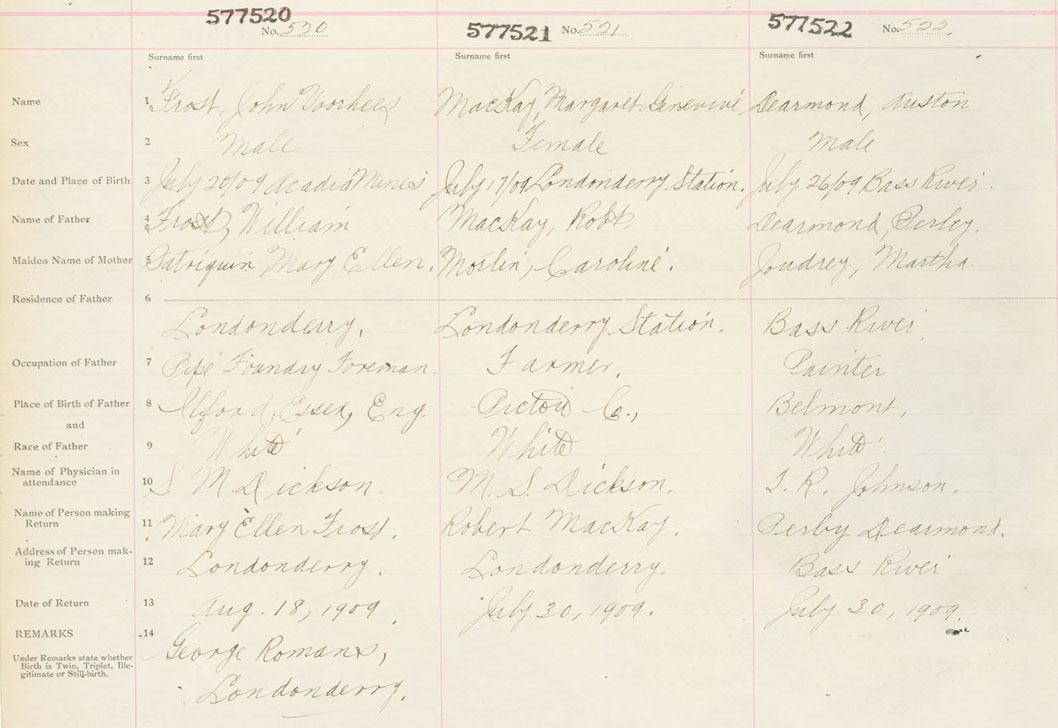 577520 No. 520 577521 No. 521 577522 No. 522.
Surname first Surname first Surname first
Name 1 Frost, John Voorhees MacKay, Margaret Genevive Dearmond, Auston
Sex 2 Male Female Male
Date and Place of Birth 3 July 20/09 Acadia Mines July 17/09 Londonderry Station. July 26/09 Bass River.
Name of Father 4 Frost, William MacKay, Robt. Dearmond, Perley.
Maiden Name of Mother 5 Patriquin Mary Ellen. Morlin, Caroline. Joudrey, Martha.
Residence of Father 6
Londonderry. Londonderry Station. Bass River
Occupation of Father 7 Pipe Foundry Foreman. Farmer. Painter
Place of Birth of Father 8 Ilford, Essex, Eng. Pictou C., Belmont,
and
Race of Father 9 White White White
Name of Physician in
attendance 10 S. M. Dickson. M. S. Dickson. T. R. Johnson.
Name of Person making
Return 11 Mary Ellen Frost. Robert MacKay. Dearmond.
Address of Person mak-
ing Return 12 Londonderry. Londonderry. Bass River
Date of Return 13 Aug. 18, 1909 July 30, 1909. July 30, 1909.
REMARKS 14 George Romans,
Under Remarks state whether
Birth is Twin, Triplet, Ille-
gitimate or Still-birth.
Londonderry.